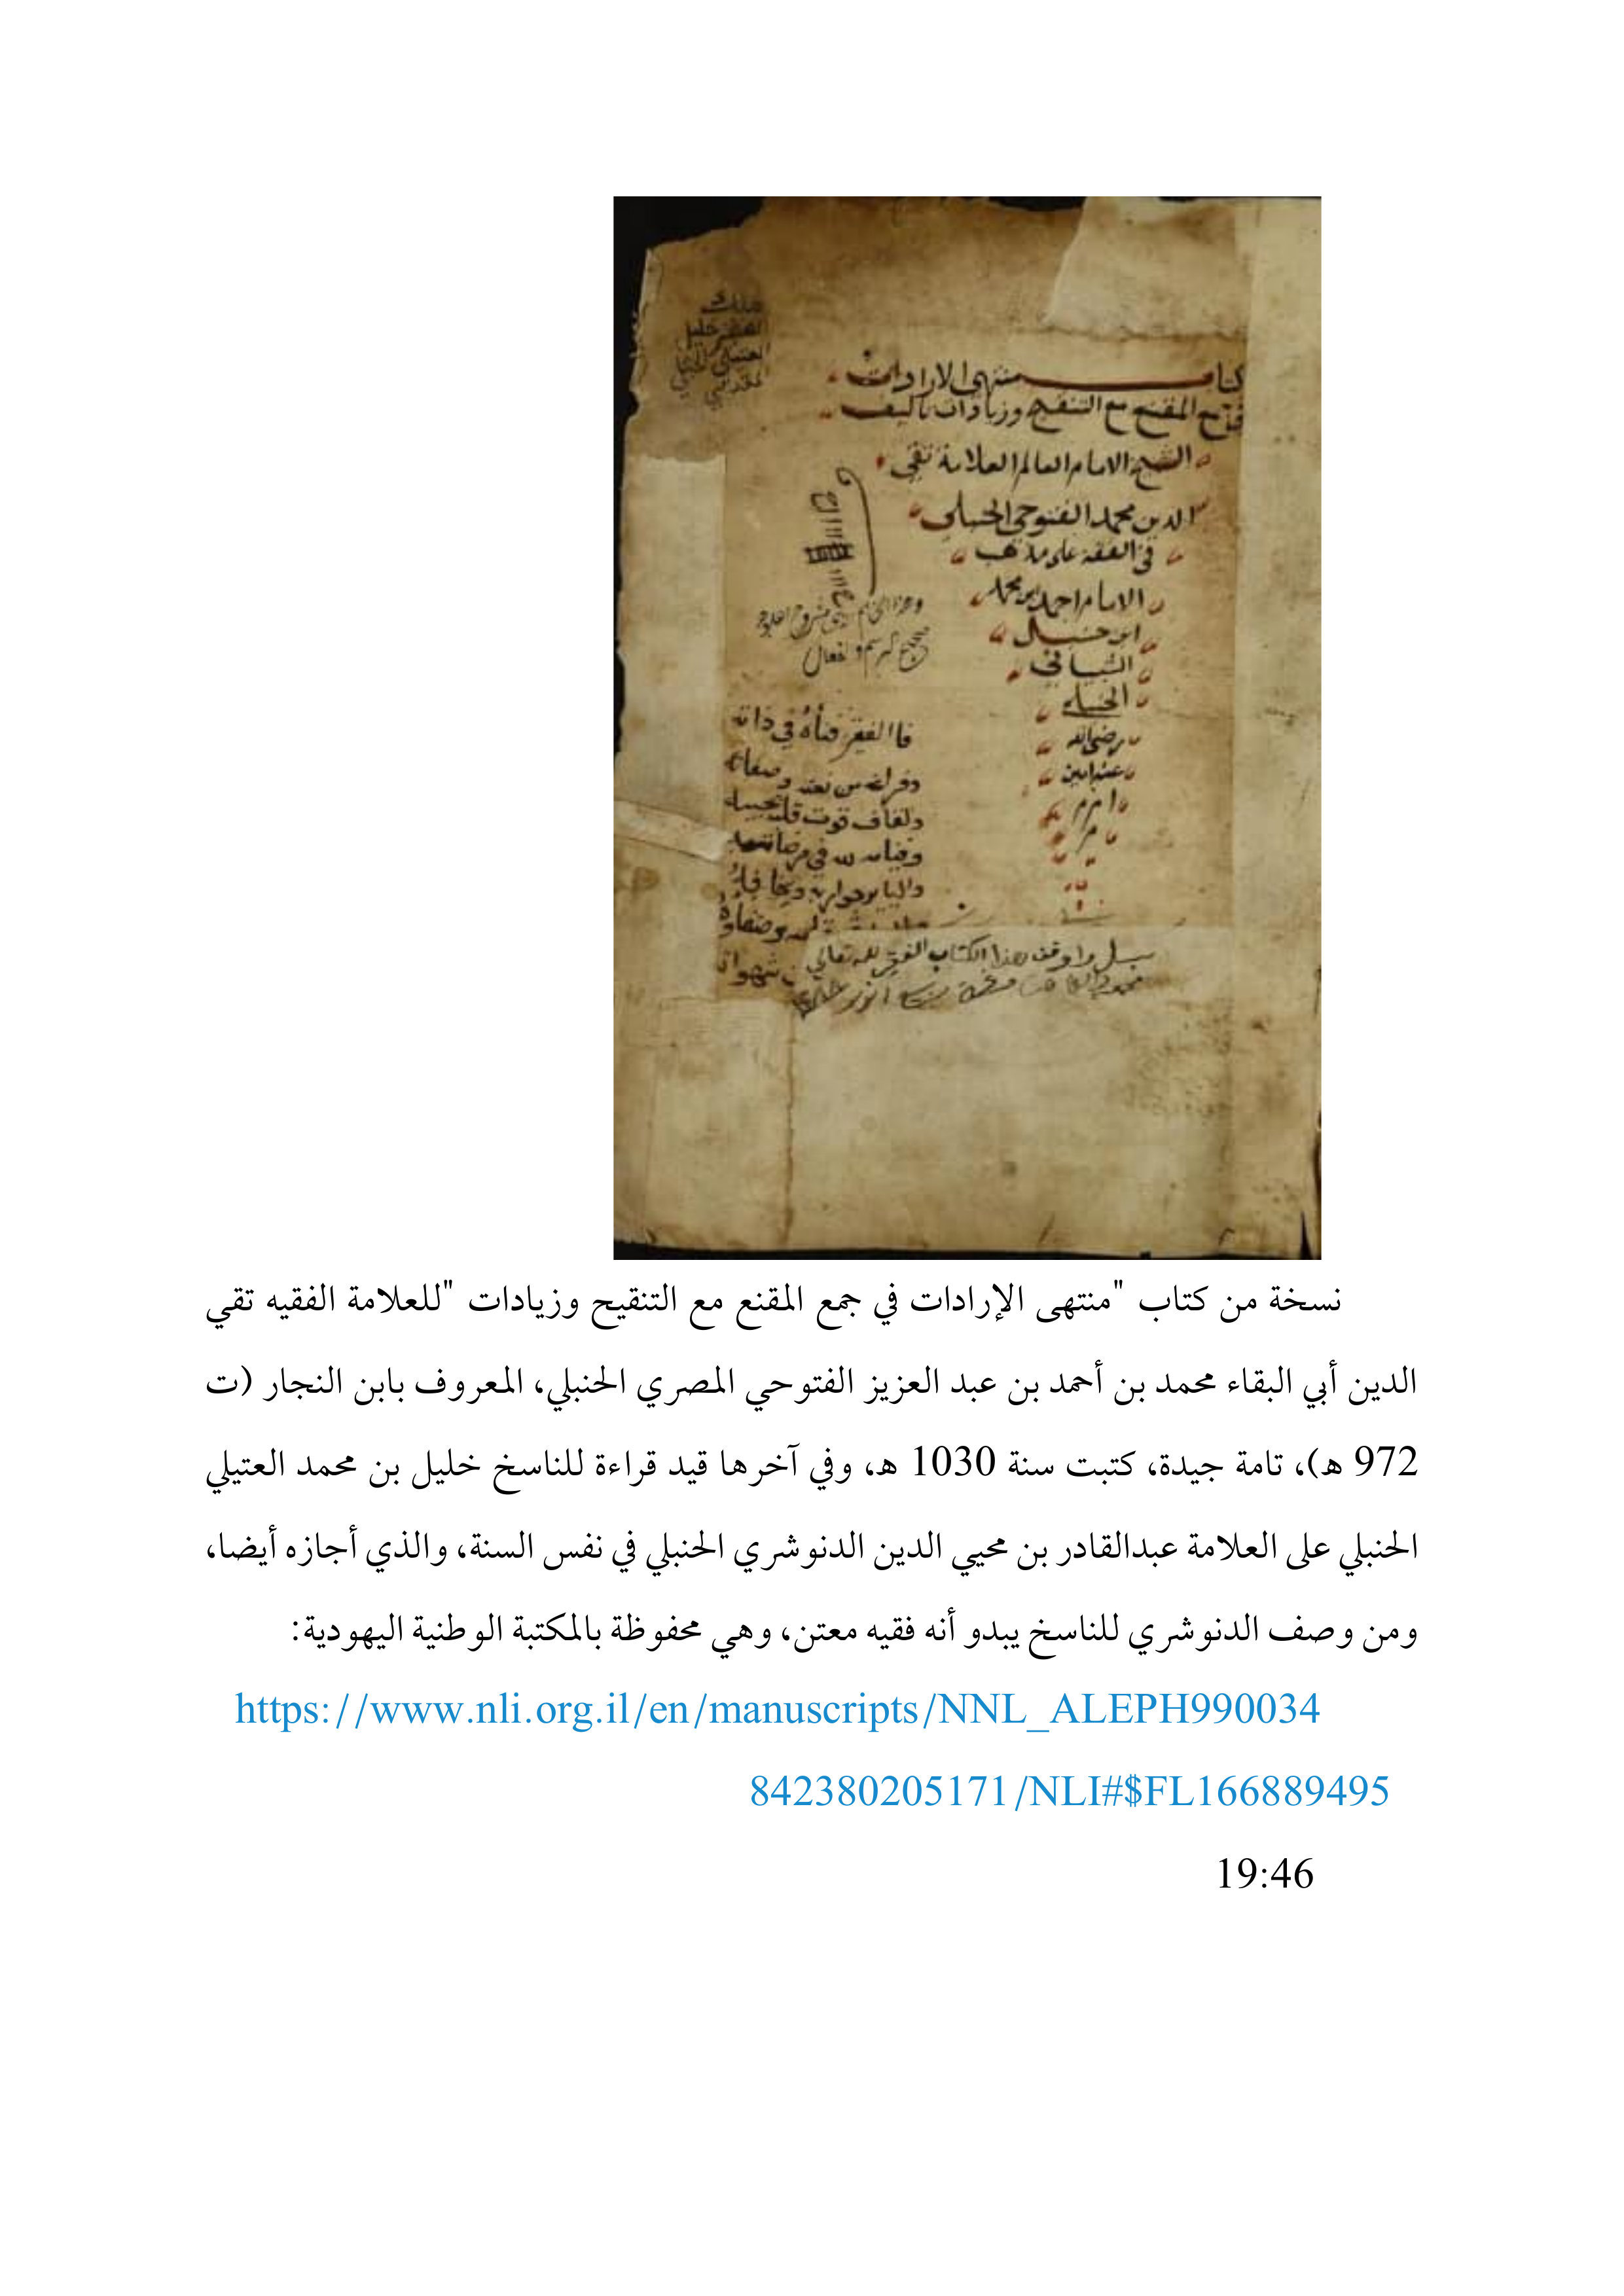 كتاب منتهى الارادات
جمع المقنع مع التنقيح وزيادات تاليف
الشيخ الامام العالم العلامة تقي
الدين محمد الفتوحي الحنبلي
في الفقه على مذهب
الامام احمد بن محمد
ابن حنبل
الشيباني
الحنبلي
رضي الله
عنه امين
فالفقر فناؤه في ذاته
وفراغه من نعته وصفاته
هذا الكتاب الفقير لله تعالى
نسخة من كتاب "منتهى الإرادات في جمع المقنع مع التنقيح وزيادات "للعلامة الفقيه تقي
الدين أبي البقاء محمد بن أحمد بن عبد العزيز الفتوحي المصري الحنبلي، المعروف بابن النجار (ت
972 هـ)، تامة جيدة، كتبت سنة 1030 هـ، وفي آخرها قيد قراءة للناسخ خليل بن محمد العتيلي
الحنبلي على العلامة عبدالقادر بن محيي الدين الدنوشري الحنبلي في نفس السنة، والذي أجازه أيضا،
ومن وصف الدنوشري للناسخ يبدو أنه فقيه معتن، وهي محفوظة بالمكتبة الوطنية اليهودية:
https://www.nli.org.il/en/manuscripts/NNL_ALEPH990034
842380205171/NLI#$FL166889495
19:46